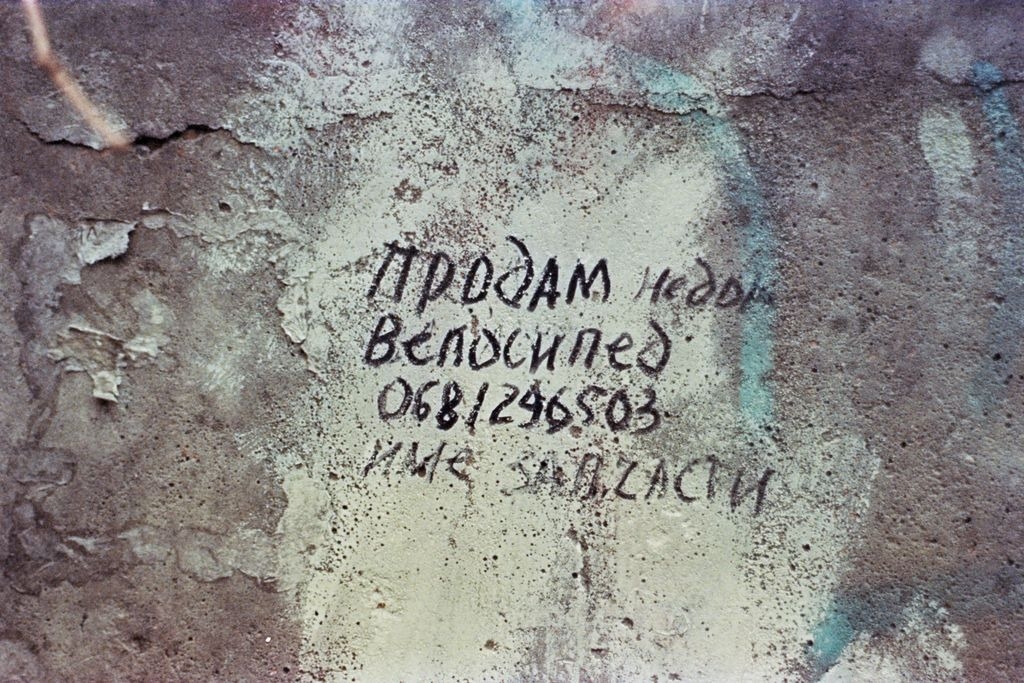 ПРОДАМ недор
Велосипед
0681296503
ИЛИ ЗАПЧАСТИ